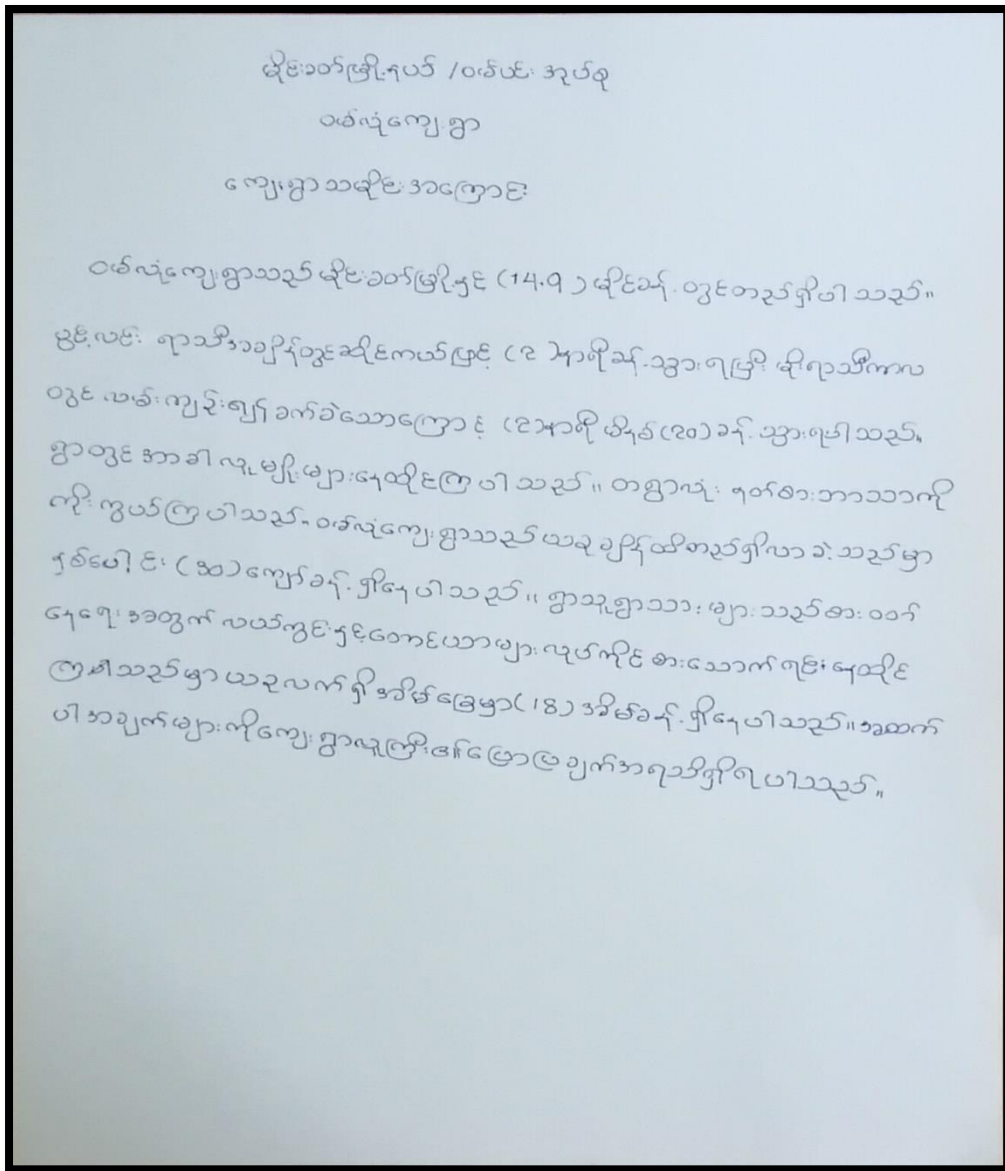 မိုင်းခတ်မြို့နယ် /ဝမ်ပင်း အုပ်စု
ဝမ်လုံကျေးရွာ
ကျေးရွာသမိုင်းအကြောင်း
ဝမ်လုံကျေးရွာသည် မိုင်းခတ်မြို့နှင့် (14.9) မိုင်ခန့် တွင်တည်ရှိပါသည်။
ပွင့်လင်း ရာသီအချိန်တွင်ဆိုင်ကယ်ဖြင့် (၁)နာရီခန့် သွားရပြီး မိုးရာသီကာလ
တွင် လမ်းကျဉ်း၍ ခက်ခဲသောကြောင့် (၁)နာရီ မိနစ်(၃၀)ခန့် သွားရပါသည်။
ရွာတွင် အာခါ လူမျိုးများနေထိုင်ကြပါသည်။ တရွာလုံး နတ်စားဘာသာကို
ကိုးကွယ်ကြပါသည်။ ဝမ်လုံကျေးရွာသည် ယခုချိန်ထိတည်ရှိလာခဲ့သည်မှာ
နှစ်ပေါင်း (၃၀)ကျော်ခန့် ရှိနေပါသည်။ ရွာသူရွာသားများသည် စားဝတ်
နေရေးအတွက် လယ်ကွင်းနှင့်တောင်ယာများ လုပ်ကိုင် စားသောက် ရင်းနေထိုင်
ကြပါသည်မှာ ယခုလက်ရှိ အိမ်ခြေမှာ(18) အိမ်ခန့် ရှိနေပါသည်။ အထက်
ပါအချက်များကို ကျေးရွာလူကြီး၏ ပြောပြချက်အရသိရှိရပါသည်။